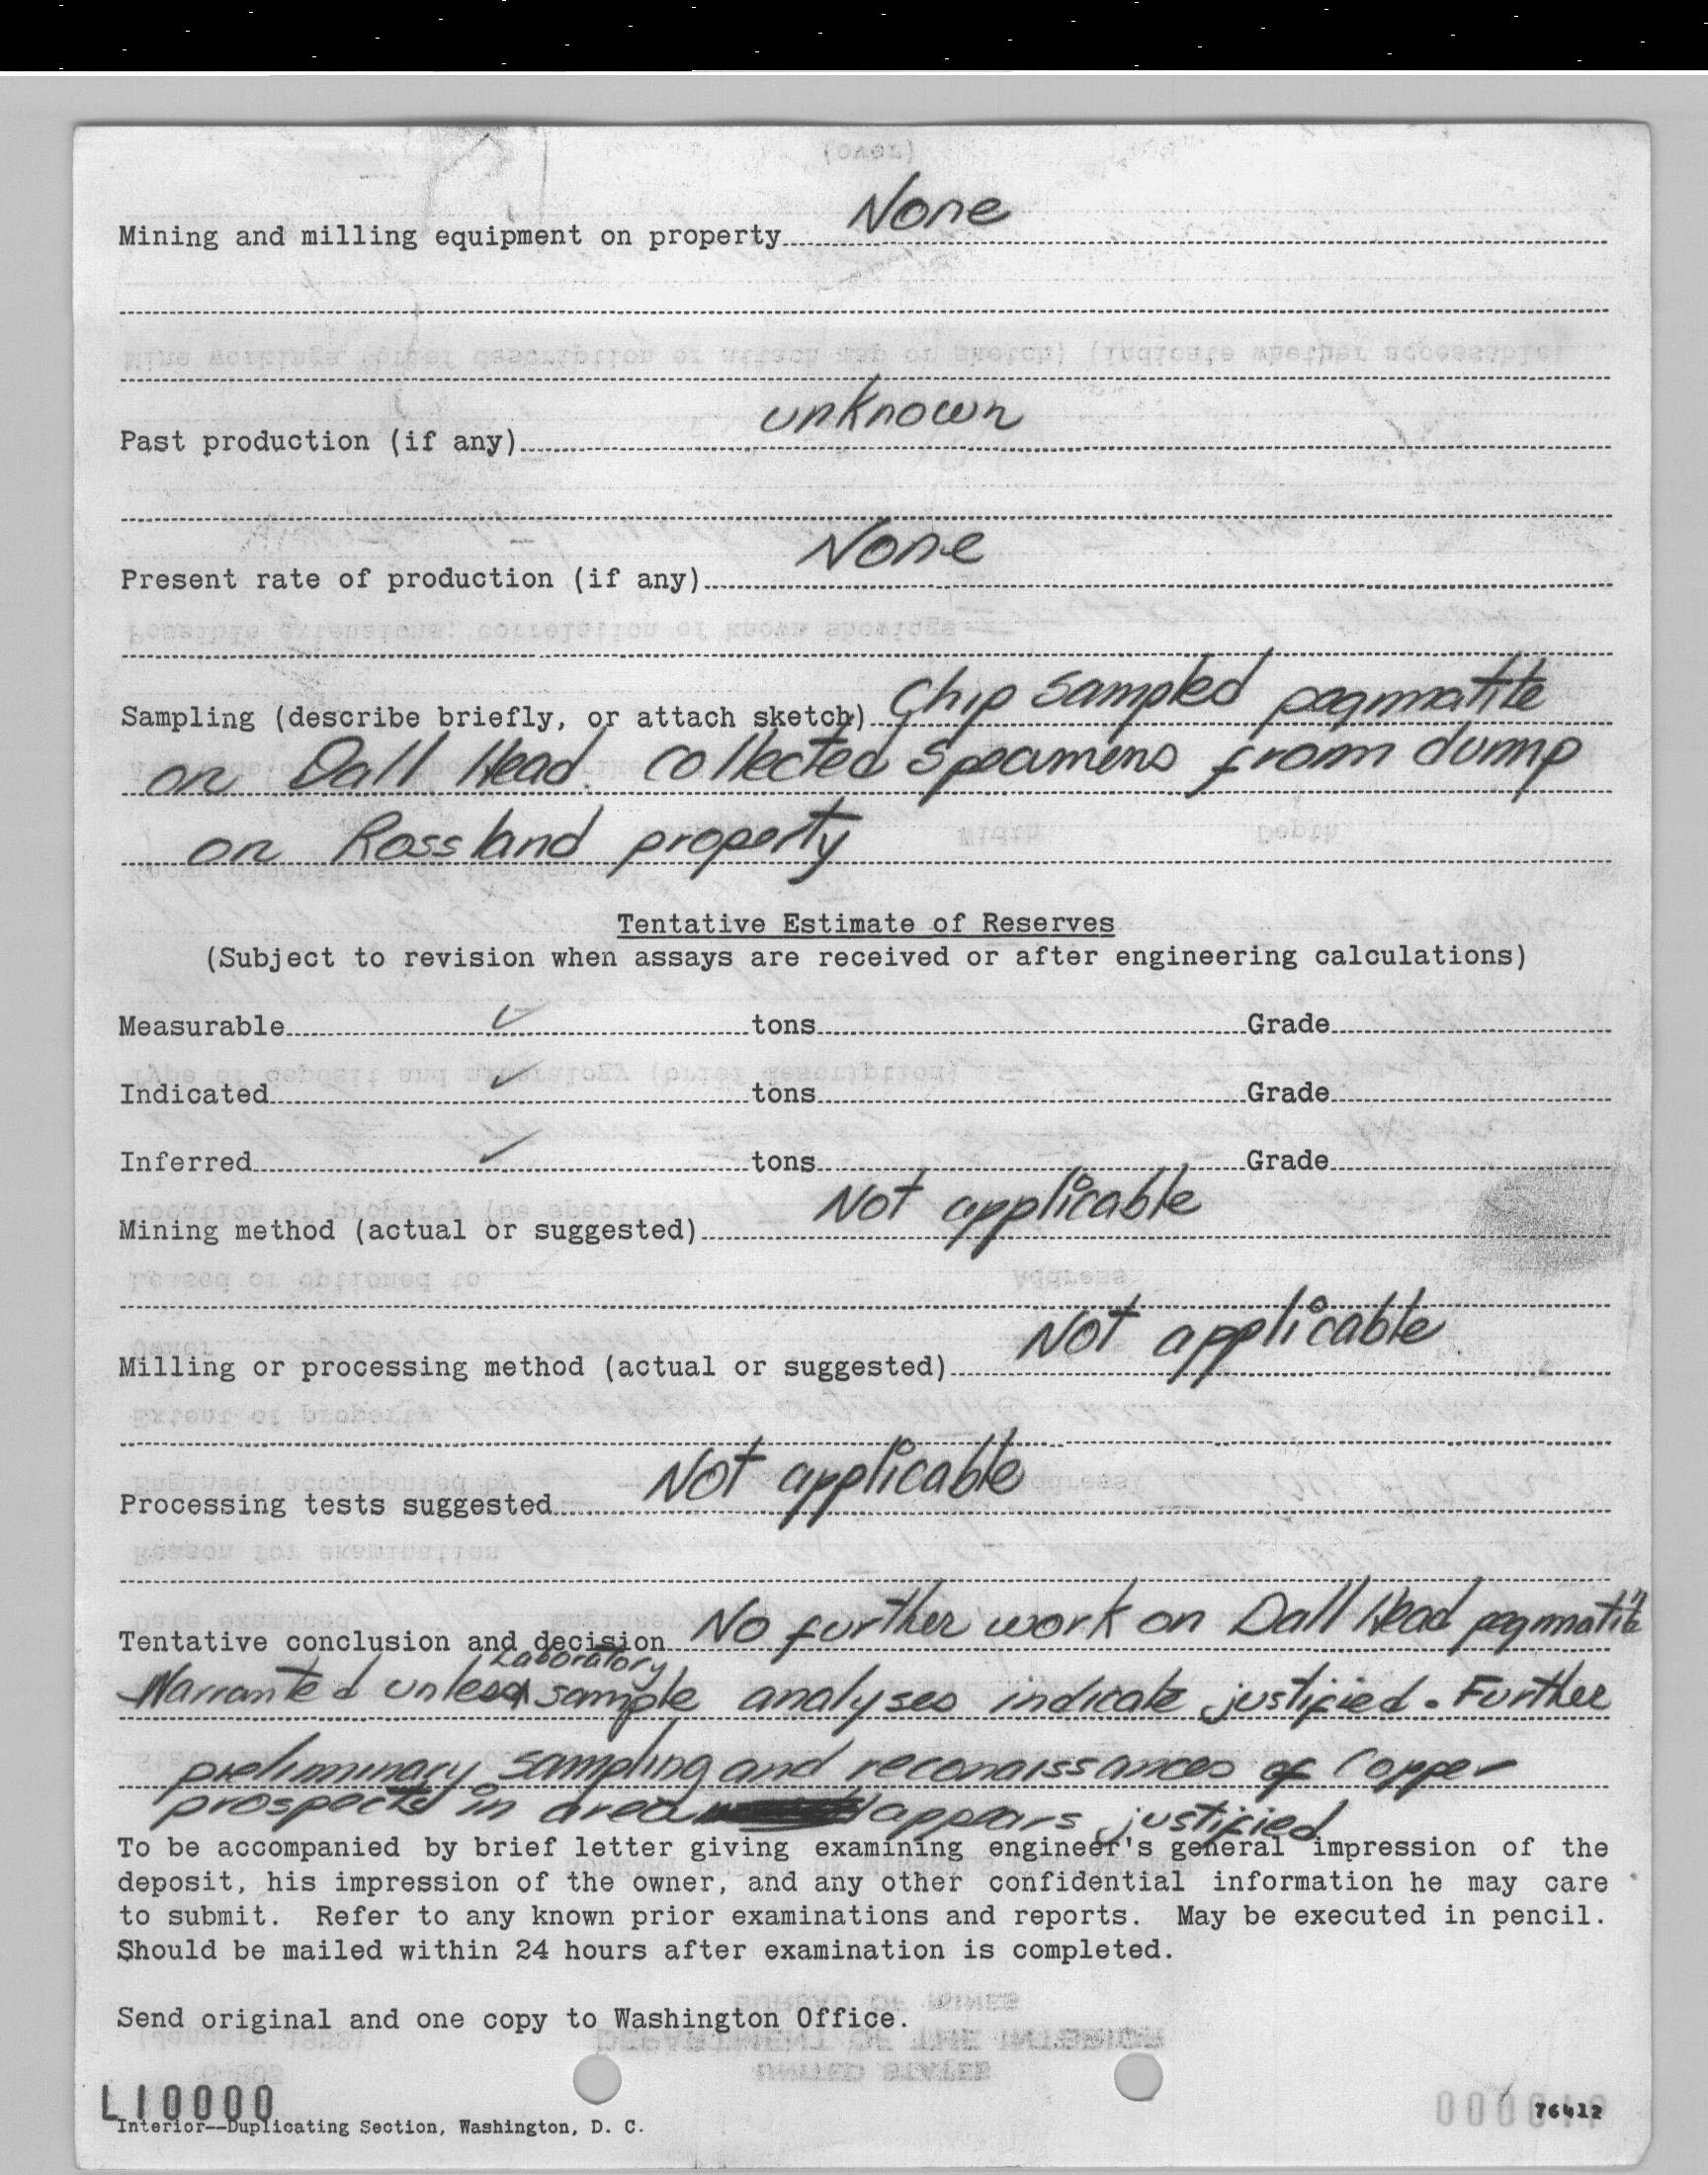 (over)
Mining and milling equipment on property None
Past production (if any) unknown
Present rate of production (if any) None
Sampling (describe briefly, or attach sketch) Chip sampled pegmatite
on Dall Head. collected specimens from dump
on Rossland property
Tentative Estimate of Reserves
(Subject to revision when assays are received or after engineering calculations)
Measurable ✓ tons Grade
Indicated ✓ tons Grade
Inferred ✓ tons Grade
Mining method (actual or suggested) Not applicable
Milling or processing method (actual or suggested) Not applicable
Processing tests suggested Not applicable
Tentative conclusion and decision No further work on Dall Head pegmatite
Laboratory
Warranted unless sample analyses indicate justified. Further
preliminary sampling and reconaissances of Copper
prospects in area appears justified
To be accompanied by brief letter giving examining engineer's general impression of the
deposit, his impression of the owner, and any other confidential information he may care
to submit. Refer to any known prior examinations and reports. May be executed in pencil.
Should be mailed within 24 hours after examination is completed.
Send original and one copy to Washington Office.
L10000
Interior--Duplicating Section, Washington, D. C.
76412